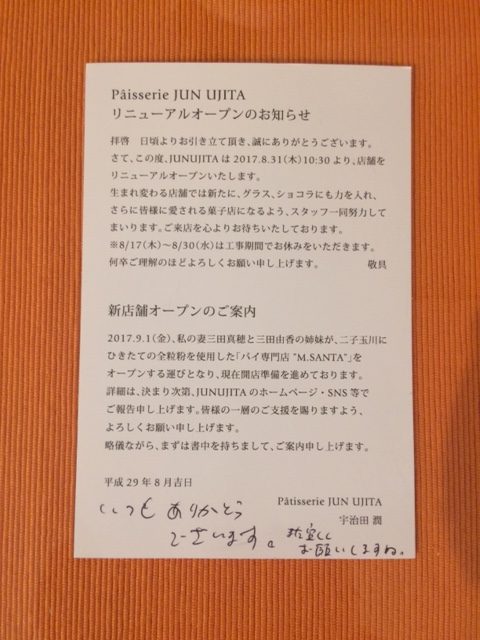 Pâisserie JUN UJITA
リニューアルオープンのお知らせ
拝啓　日頃よりお引き立て頂き、誠にありがとうございます。
さて、この度、JUNUJITAは2017.8.31（木）10:30より、店舗を
リニューアルオープンいたします。
生まれ変わる店舗では新たに、グラス、ショコラにも力を入れ、
さらに皆様に愛される菓子店になるよう、スタッフ一同努力して
まいります。ご来店を心よりお待ちいたしております。
※8/17（木）〜8/30（水）は工事期間でお休みをいただきます。
何卒ご理解のほどよろしくお願い申し上げます。　敬具
新店舗オープンのご案内
2017.9.1（金）、私の妻三田真穂と三田由香の姉妹が、二子玉川に
ひきたての全粒粉を使用した「パイ専門店 "M.SANTA"」を
オープンする運びとなり、現在開店準備を進めております。
詳細は、決まり次第、JUNUJITAのホームページ・SNS等で
ご報告申し上げます。皆様の一層のご支援を賜りますよう、
よろしくお願い申し上げます。
略儀ながら、まずは書中を持ちまして、ご案内申し上げます。
平成29年8月吉日
Pâtisserie JUN UJITA
宇治田 潤
いつも ありがとう
ございます。
お願いしますね。